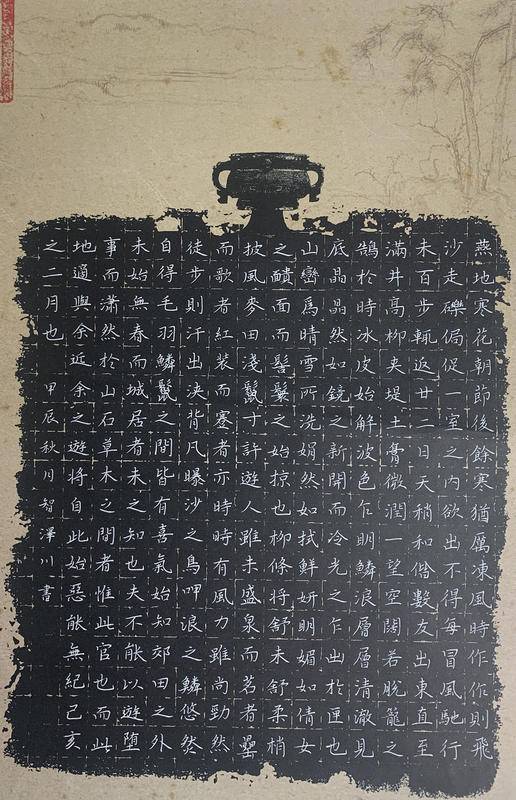 燕地寒花朝節後餘寒猶厲凍風時作作則飛
沙走礫局促一室之內欲出不得每冒風馳行
未百步輒返廿二日天稍和偕數友出東直至
滿井高柳夾堤土膏微潤一望空闊若脫籠之
鵠於時冰皮始解波色乍明鱗浪層層清澈見
底晶晶然如鏡之新開而冷光之乍出於匣也
山巒爲晴雪所洗娟然如拭鮮妍明媚如倩女
之靧面而髻鬟之始掠也柳條將舒未舒柔梢
披風麥田淺鬣寸許遊人雖未盛泉而茗者罍
而歌者紅裝而蹇者亦時時有風力雖尚勁然
徒步則汗出浹背凡曝沙之鳥呷浪之鱗悠然
自得毛羽鱗鬣之間皆有喜氣始知郊田之外
未始無春而城居者未之知也夫不能以遊墮
事而瀟然於山石草木之間者惟此官也而此
地適與余近余之遊將自此始惡能無紀己亥
之二月也 甲辰秋月智澤川書